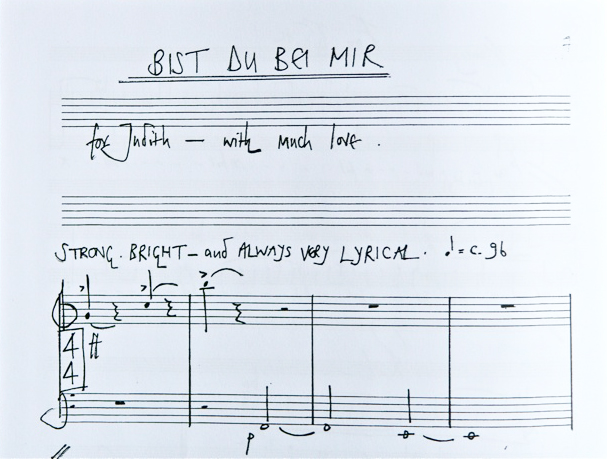 BIST DU BEI MIR
for Judith – with much love.
STRONG. BRIGHT – and ALWAYS VERY LYRICAL. ♩ = c. 96
4
4
ff
p